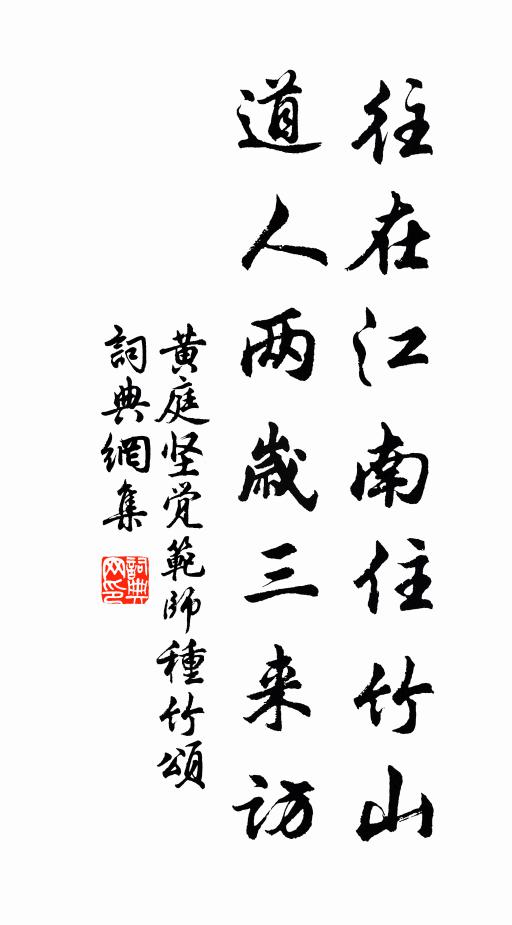 往在江南住竹山
道人两歲三来訪
黄庭坚觉範師種竹頌
詞典網集
詞典网印